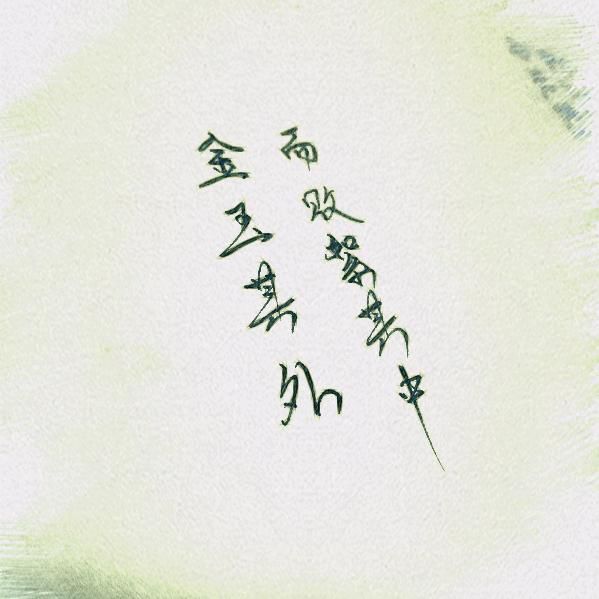 金玉其外
而败絮其中